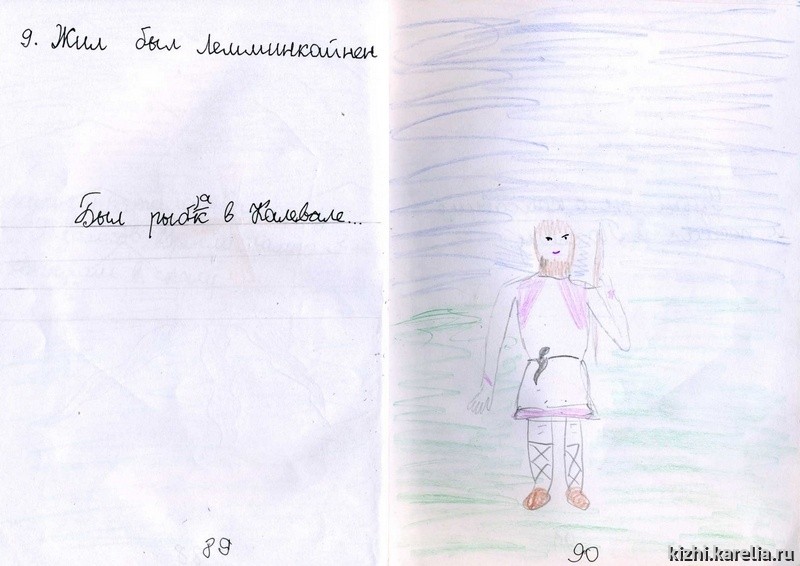 9. Жил был Лемминкайнен
Был рыбак в Калевале...
89
90
kizhi.karelia.ru